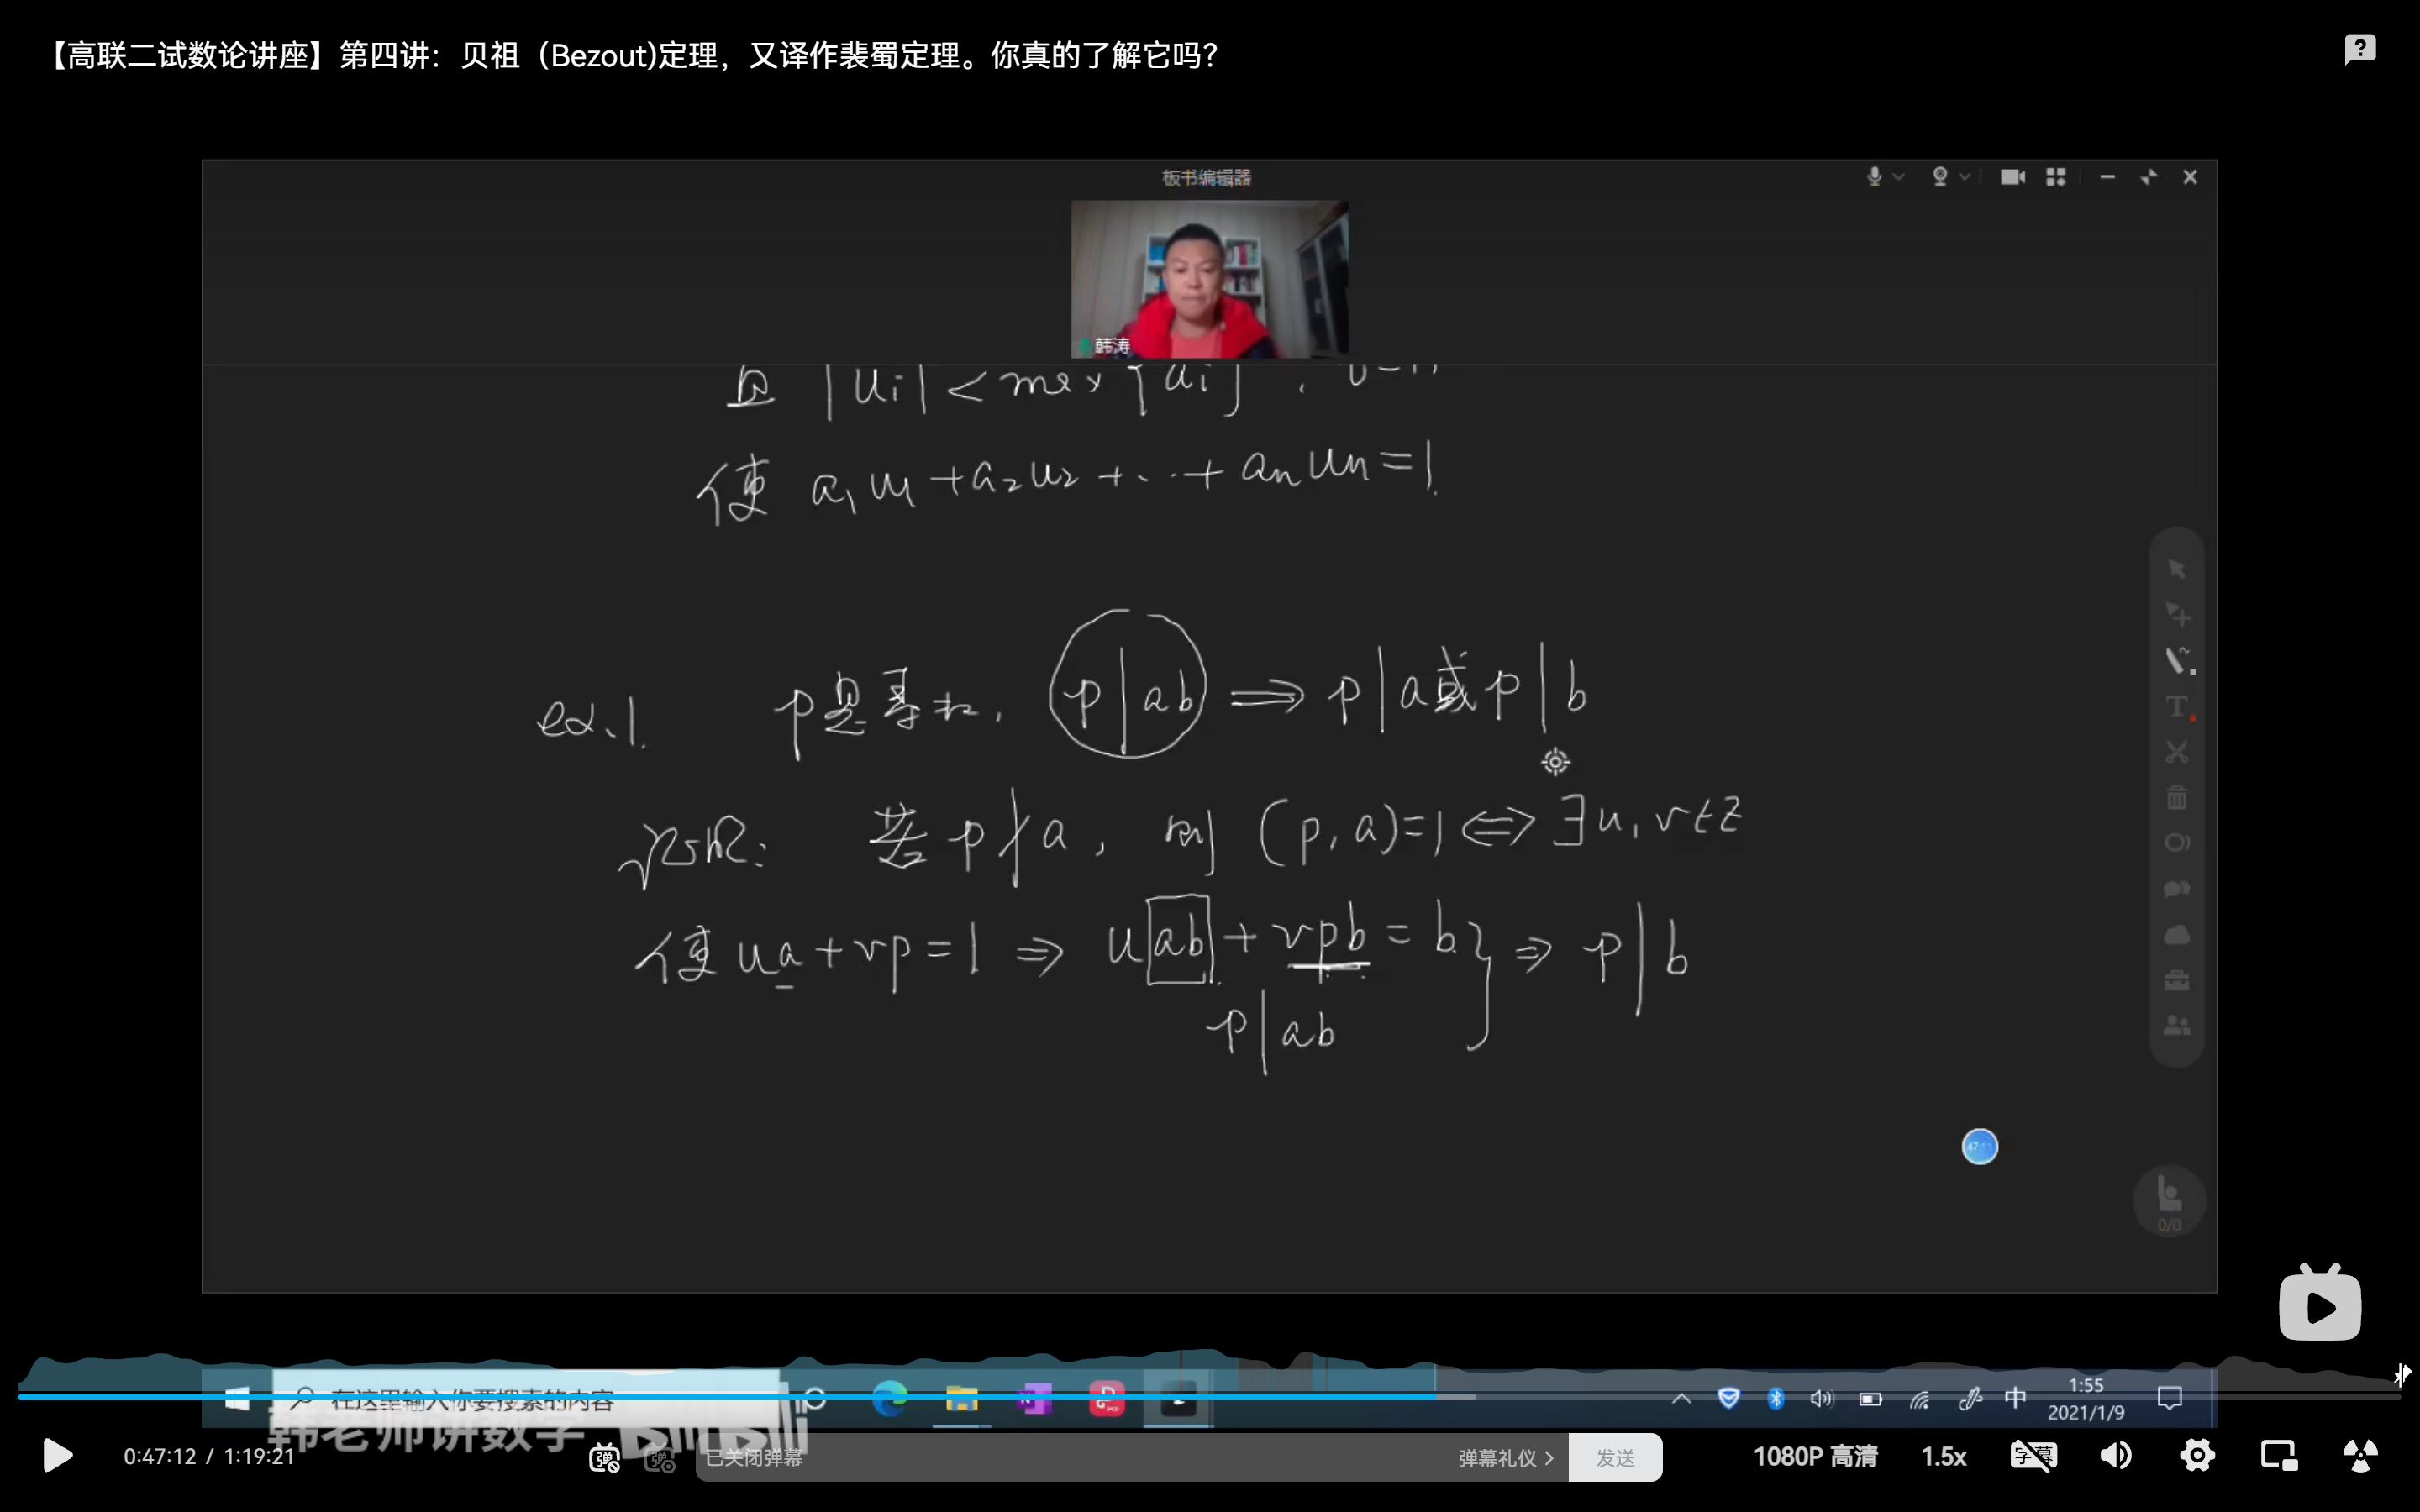 【高联二试数论讲座】第四讲：贝祖（Bezout)定理，又译作裴蜀定理。你真的了解它吗？
板书编辑器
韩涛
且 |ui| < max {ai}
使 a₁u₁+a₂u₂+...+aₙuₙ=1.
ex.1. p是素数, p|ab ⟹ p|a或p|b
证明: 若 p∤a, 则 (p,a)=1 ⟺ ∃u,v∈Z
使 ua+vp=1 ⇒ uab+vpb=b } ⇒ p|b
p|ab
47:11
0/0
在这里输入你要搜索的内容
中
1:55
2021/1/9
韩老师讲数学 bilibili
0:47:12 / 1:19:21
弹
已关闭弹幕
弹幕礼仪 >
发送
1080P 高清
1.5x
字幕